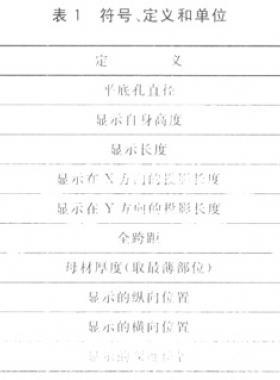 表 1 符号、定义和单位
定 义
平底孔直径
显示自身高度
显示长度
显示在 X 方向的投影长度
显示在 Y 方向的投影长度
全跨距
母材厚度(取最薄部位)
显示的纵向位置
显示的横向位置
显示的深度位置